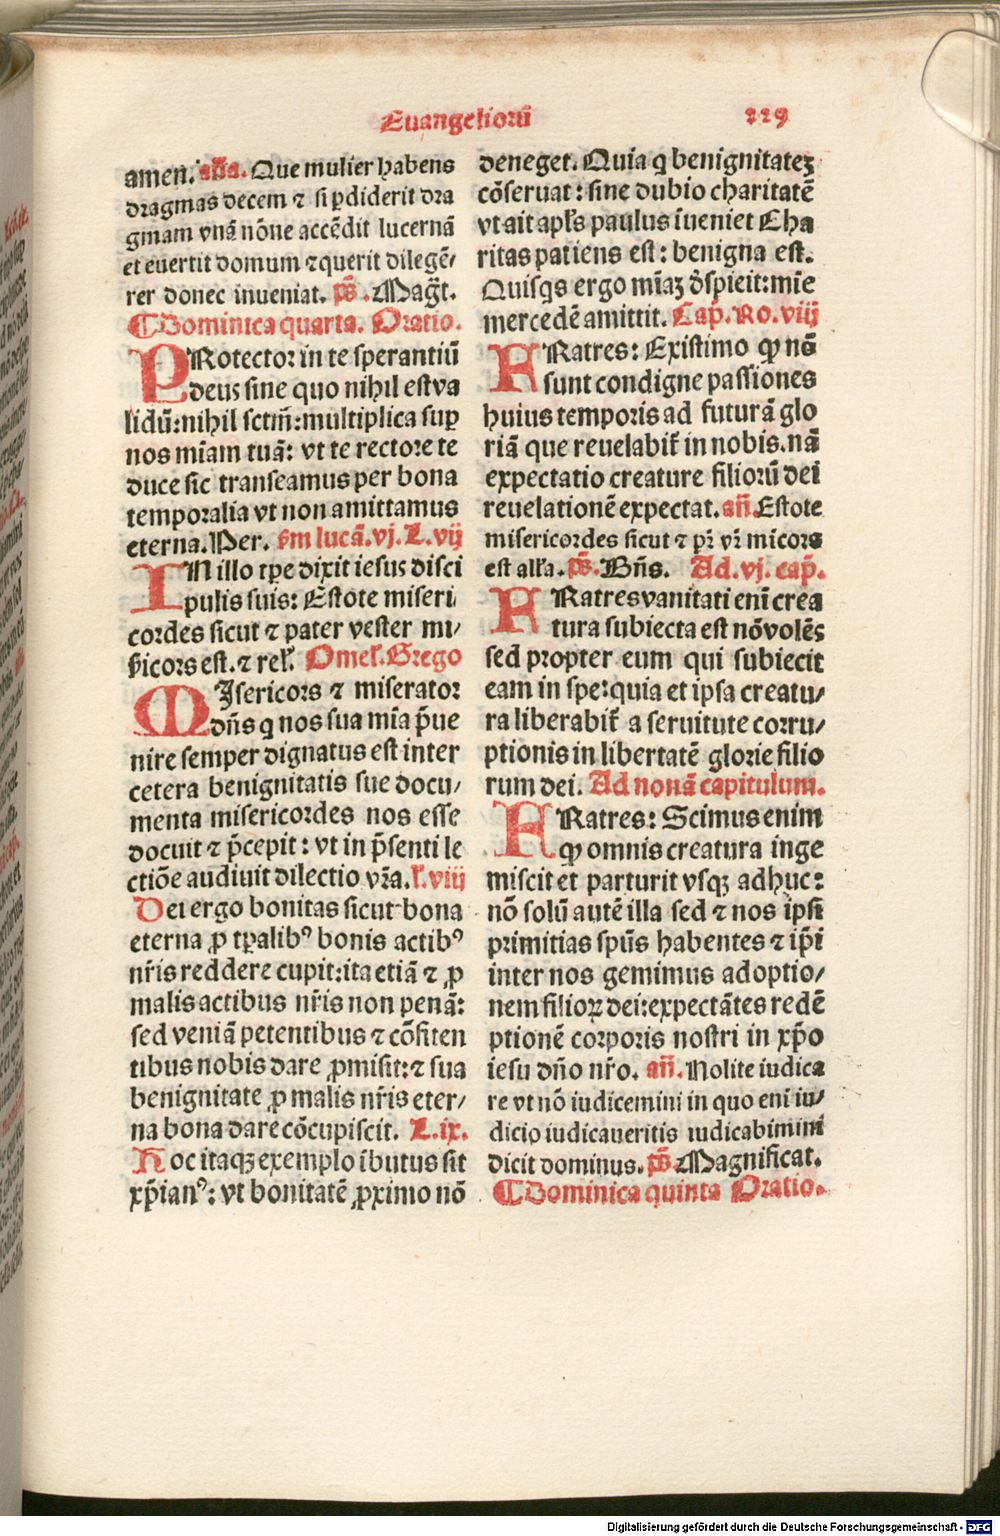 Euangelioꝝ 229
amen. añа. Que mulier habens
dragmas decem ⁊ si ꝑdiderit dra
gmam vnã nõne accẽdit lucernã
et euertit domum ⁊querit dilegẽ/
rer donec inueniat. p̃s. Mag̃t.
¶Dominica quarta. Oratio.
PRotector in te sperantiũ
deus sine quo nihil est va
lidũ: nihil sctm̃: multiplica suꝑ
nos miam̃ tuã: vt te rectore te
duce sic transeamus per bona
temporalia vt non amittamus
eterna. Per. ẜm lucã. vj. L. vij
IN illo tꝑe dixit iesus disci
pulis suis: Estote miseri
cordes sicut ⁊ pater vester mi/
ẜicors est. ⁊ rel̃. Omel̃. Grego
MIsericors ⁊ miserator
dñs q nos sua mĩa p̃ue
nire semper dignatus est inter
cetera benignitatis sue docu/
menta misericordes nos esse
docuit ⁊ p̃cepit: vt in p̃senti le
ctiõe audiuit dilectio vr̃a. l. viij
Dei ergo bonitas sicut bona
eterna ꝓ tꝑalibꝰ bonis actibꝰ
nr̃is reddere cupit: ita etiã ⁊ ꝓ
malis actibus nr̃is non penã:
sed veniã petentibus ⁊ cõfiten
tibus nobis dare ꝓmisit: ⁊ sua
benignitate ꝓ malis nr̃is eter/
na bona dare cõcupiscit. L. ix.
Hoc itaqꝫ exemplo ĩbutus sit
xp̃ianꝰ: vt bonitatẽ ꝓximo nõ
deneget. Quia q benignitatez
cõseruat: sine dubio charitatẽ
vt ait apl̃s paulus ĩueniet Cha
ritas patiens est: benigna est.
Quisqs ergo mĩaꝫ d̃spicit: mĩe
mercedẽ amittit. Cap̃. Ro. viij
FRatres: Existimo ꝙ nõ
sunt condigne passiones
huius temporis ad futurã glo
riã que reuelabit̃ in nobis. nã
expectatio creature filiorũ dei
reuelationẽ expectat. añ. Estote
misericordes sicut ⁊ pr̃ vr̃ mĩcors
est all̃a. p̃s. Bñs. Ad. vj. cap̃.
FRatres vanitati enĩ crea
tura subiecta est nõ volẽs
sed propter eum qui subiecit
eam in spe: quia et ipsa creatu/
ra liberabit̃ a seruitute corru/
ptionis in libertatẽ glorie filio
rum dei. Ad nonã capitulum.
FRatres: Scimus enim
ꝙ omnis creatura inge
miscit et parturit vsqꝫ adhuc:
nõ solũ autẽ illa sed ⁊ nos ipsi
primitias spũs habentes ⁊ ip̃i
inter nos gemimus adoptio/
nem filioꝝ dei: expectãtes redẽ
ptionẽ corporis nostri in xp̃o
iesu dño nr̃o. añ. Nolite iudica
re vt nõ iudicemini in quo enĩ iu/
dicio iudicaueritis iudicabimini
dicit dominus. p̃s. Magnificat.
¶Dominica quinta Oratio.
Digitalisierung gefördert durch die Deutsche Forschungsgemeinschaft - DFG